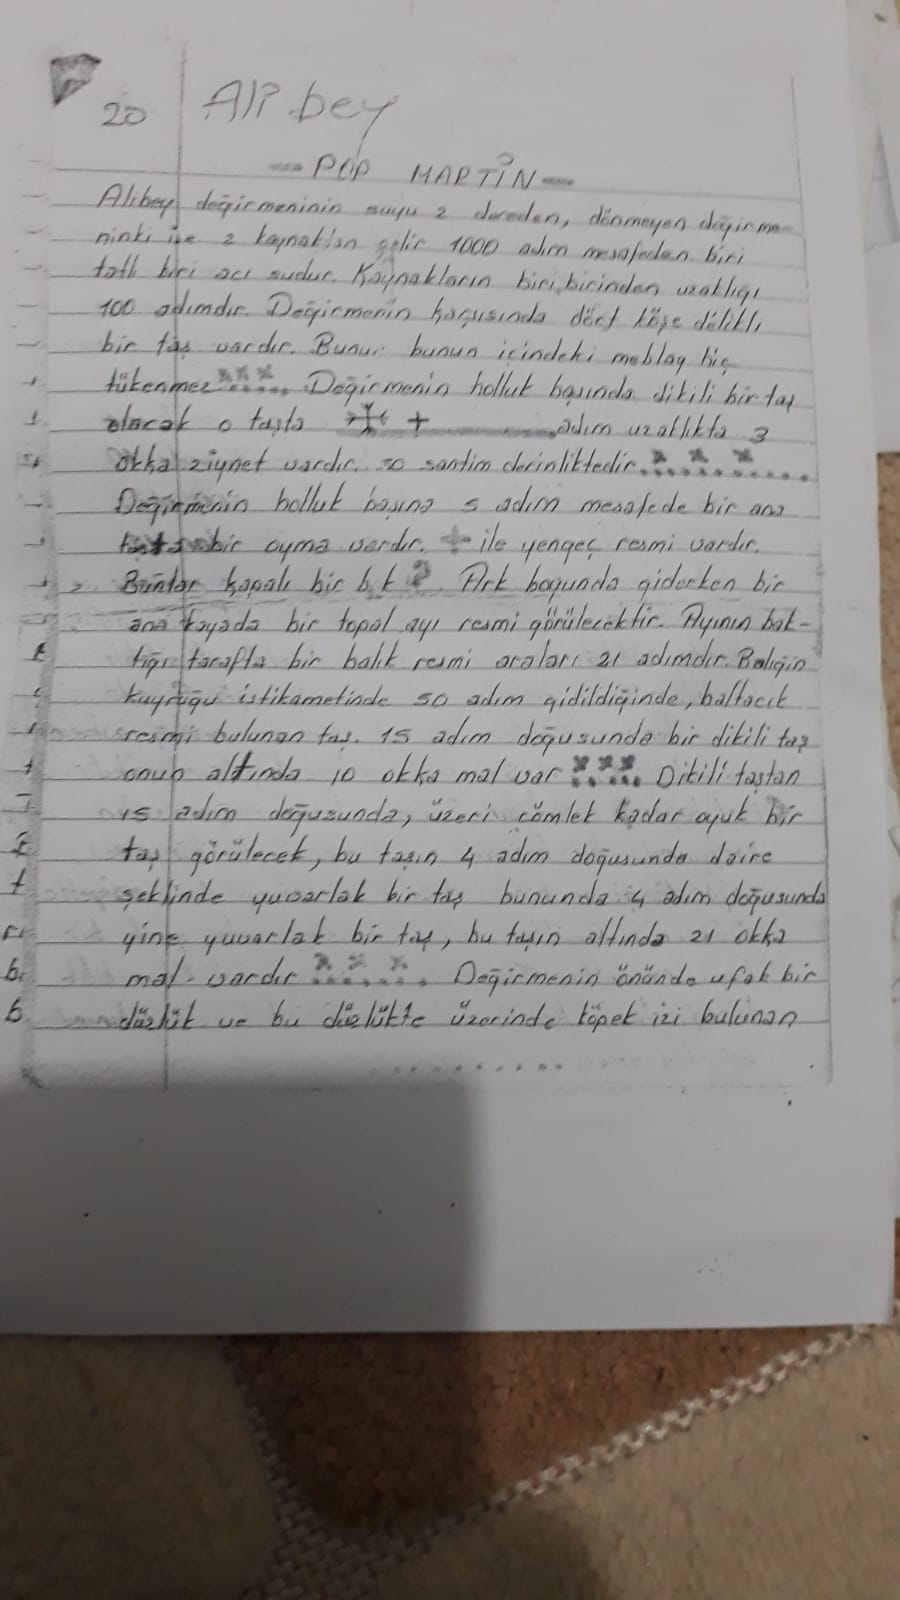 20 Ali bey
— POP MARTİN —
Alibey değirmeninin suyu 2 dereden, dönmeyen değirme-
ninki ise 2 kaynaktan gelir 1000 adım mesafeden biri
tatlı biri acı sudur. Kaynakların biribirinden uzaklığı
100 adımdır. Değirmenin karşısında dört köşe delikli
bir taş vardır. Bunun bunun içindeki meblag hiç
tükenmez xxx...... Değirmenin holluk başında dikili bir taş
olacak o taşta + adım uzaklıkta 3
okka ziynet vardır. 50 santim derinliktedir. x x x
Değirmenin holluk başına 5 adım mesafede bir ana
bir oyma vardır. + ile yengeç resmi vardır.
Bunlar kapalı bir b.k ?. Ark boyunda giderken bir
ana kayada bir topal ayı resmi görülecektir. Ayının bak-
tığı tarafta bir balık resmi araları 21 adımdır. Balığın
kuyruğu istikametinde 50 adım gidildiğinde, baltacık
resmi bulunan taş. 15 adım doğusunda bir dikili taş
onun altında 10 okka mal var xxx Dikili taştan
15 adım doğusunda, üzeri çömlek kadar oyuk bir
taş görülecek, bu taşın 4 adım doğusunda daire
şeklinde yuvarlak bir taş bununda 4 adım doğusunda
yine yuvarlak bir taş, bu taşın altında 21 okka
mal vardır x x x Değirmenin önünde ufak bir
düzlük ve bu düzlükte üzerinde köpek izi bulunan